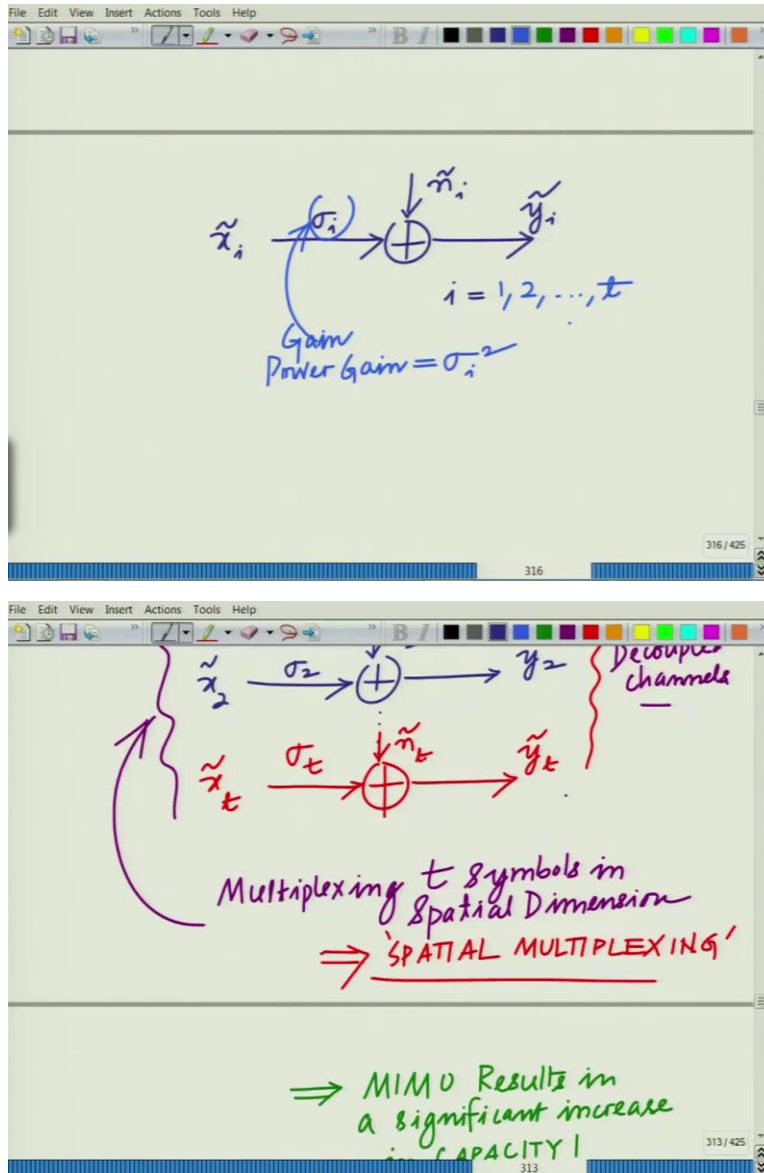 File Edit View Insert Actions Tools Help
B I
ñ_i
x̃_i (σ_i) ỹ_i
i = 1, 2, ..., t
Gain
Power Gain = σ_i²
316/425
316
File Edit View Insert Actions Tools Help
B I
x̃_2 σ_2 y_2 Decoupled
channels
ñ_t
x̃_t σ_t ỹ_t
Multiplexing t symbols in
Spatial Dimension
⇒ 'SPATIAL MULTIPLEXING'
⇒ MIMO Results in
a significant increase
in CAPACITY!
313/425
313